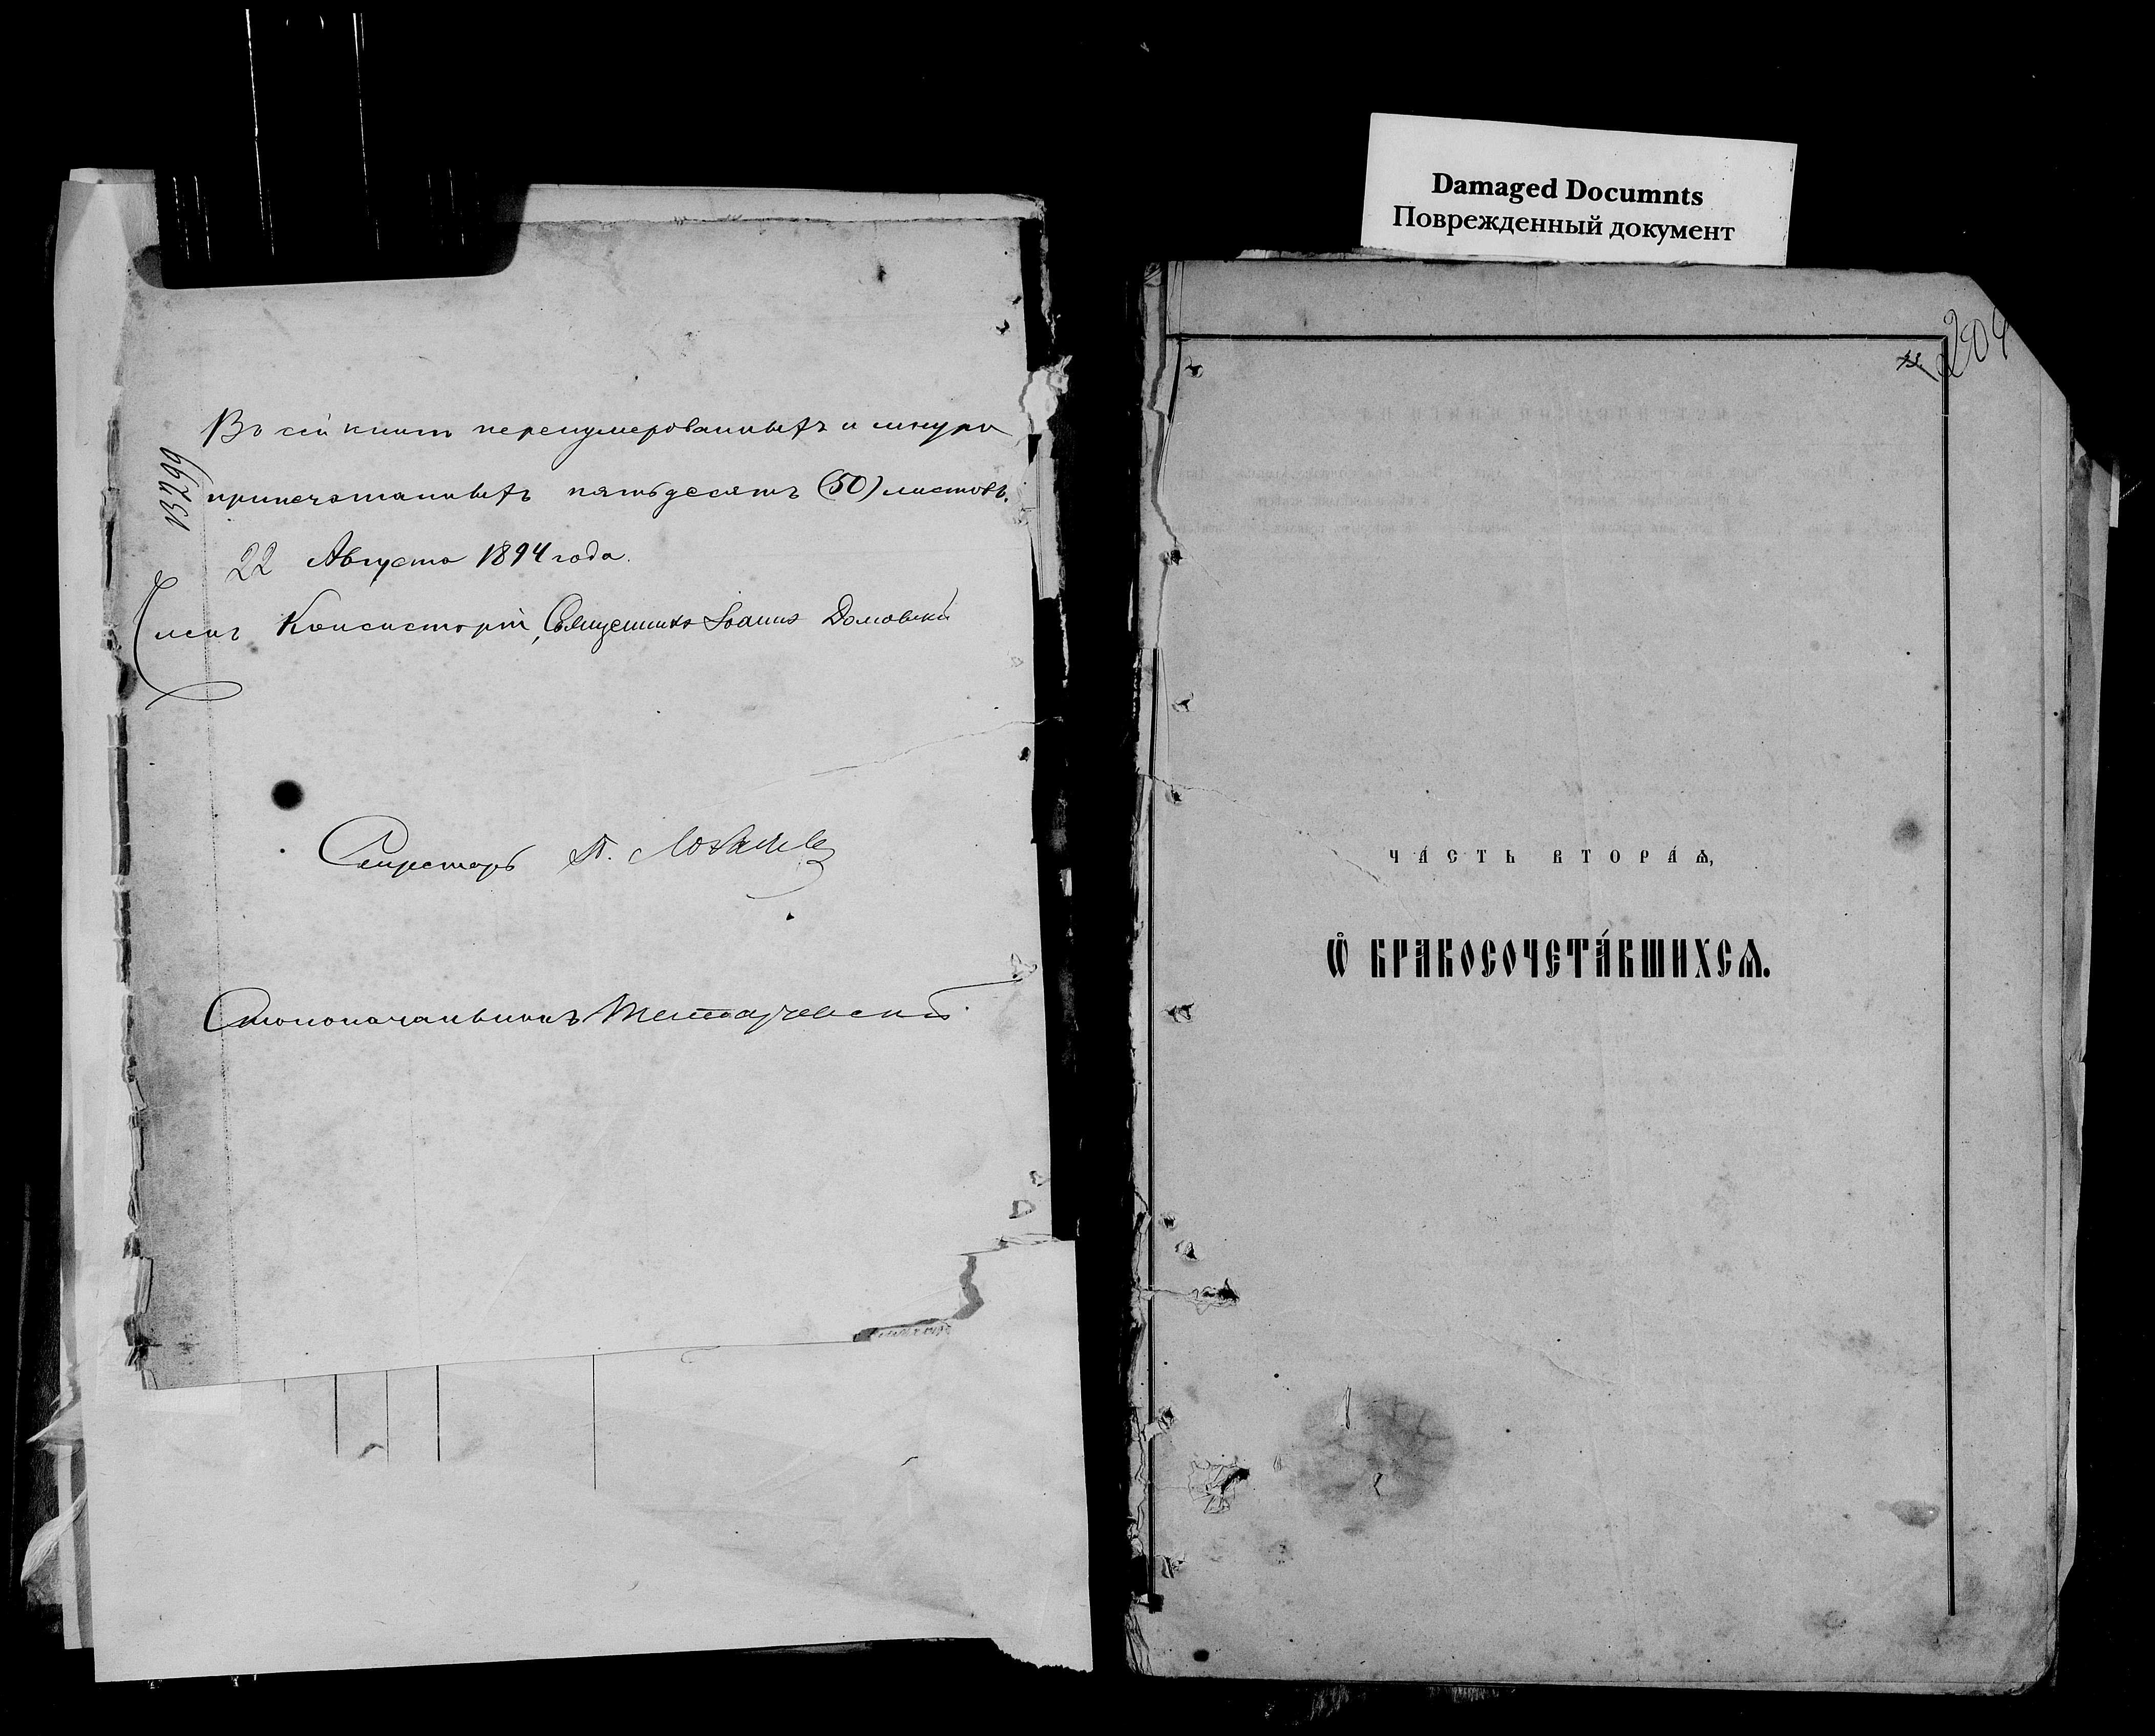 Въ сей книгѣ перенумерованныхъ и шнуро
припечатанныхъ пятьдесятъ (50) листовъ.
22 Августа 1894 года.
Членъ Консисторіи, Священникъ Іоаннъ
13299
Секретарь
Столоначальникъ
Damaged Documnts
Поврежденный документ
204
ЧА́СТЬ ВТОРА́Ѧ,
Ѡ҆ БРАКОСОЧЕТА́ВШИХСѦ.